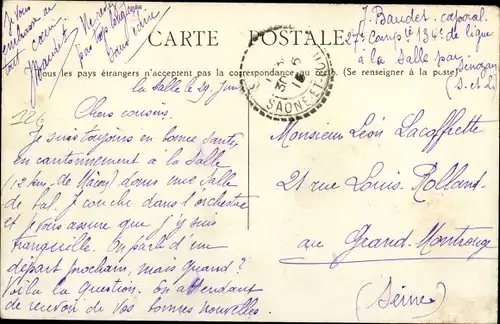 Je vous
embrasse de
tout cœur
JBaudet
Ne restez
pas trop longtemps
sans écrire
J. Baudet caporal
27e Compie 134e de ligne
à la Salle par
Senozan
(S. et L.)
CARTE POSTALE
Tous les pays étrangers n'acceptent pas la correspondance au recto. (Se renseigner à la poste)
SAONE-ET-
La Salle le 29 Juin
Chers cousins,
Je suis toujours en bonne santé,
en cantonnement à la Salle
(12 km. de Mâcon) dans une Salle
de bal. Je couche dans l'orchestre
et je vous assure que j'y suis
tranquille. On parle d'un
départ prochain, mais quand?
Voilà la question. En attendant
de recevoir de vos bonnes nouvelles.
Monsieur Léon Lacoffrette
21 rue Louis Rolland
au Grand-Montrouge
(Seine)